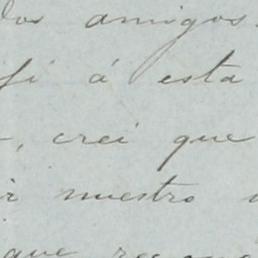 dos amigos.
á esta
, crei que
nuestro
que